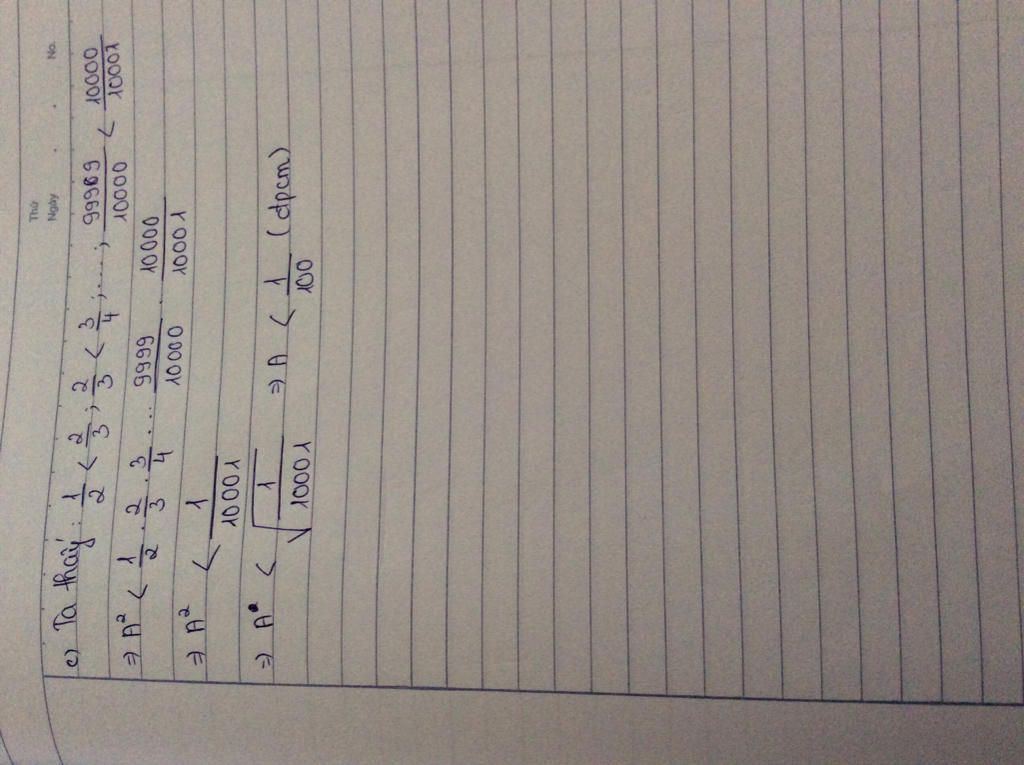 Thứ
Ngày . . No.
c) Ta thấy: 1/2 < 2/3 ; 2/3 < 3/4 ; .... ; 9999/10000 < 10000/10001
⇒ A² < 1/2 . 2/3 . 3/4 ... 9999/10000 . 10000/10001
⇒ A² < 1/10001
⇒ A < √(1/10001) ⇒ A < 1/100 (dpcm)